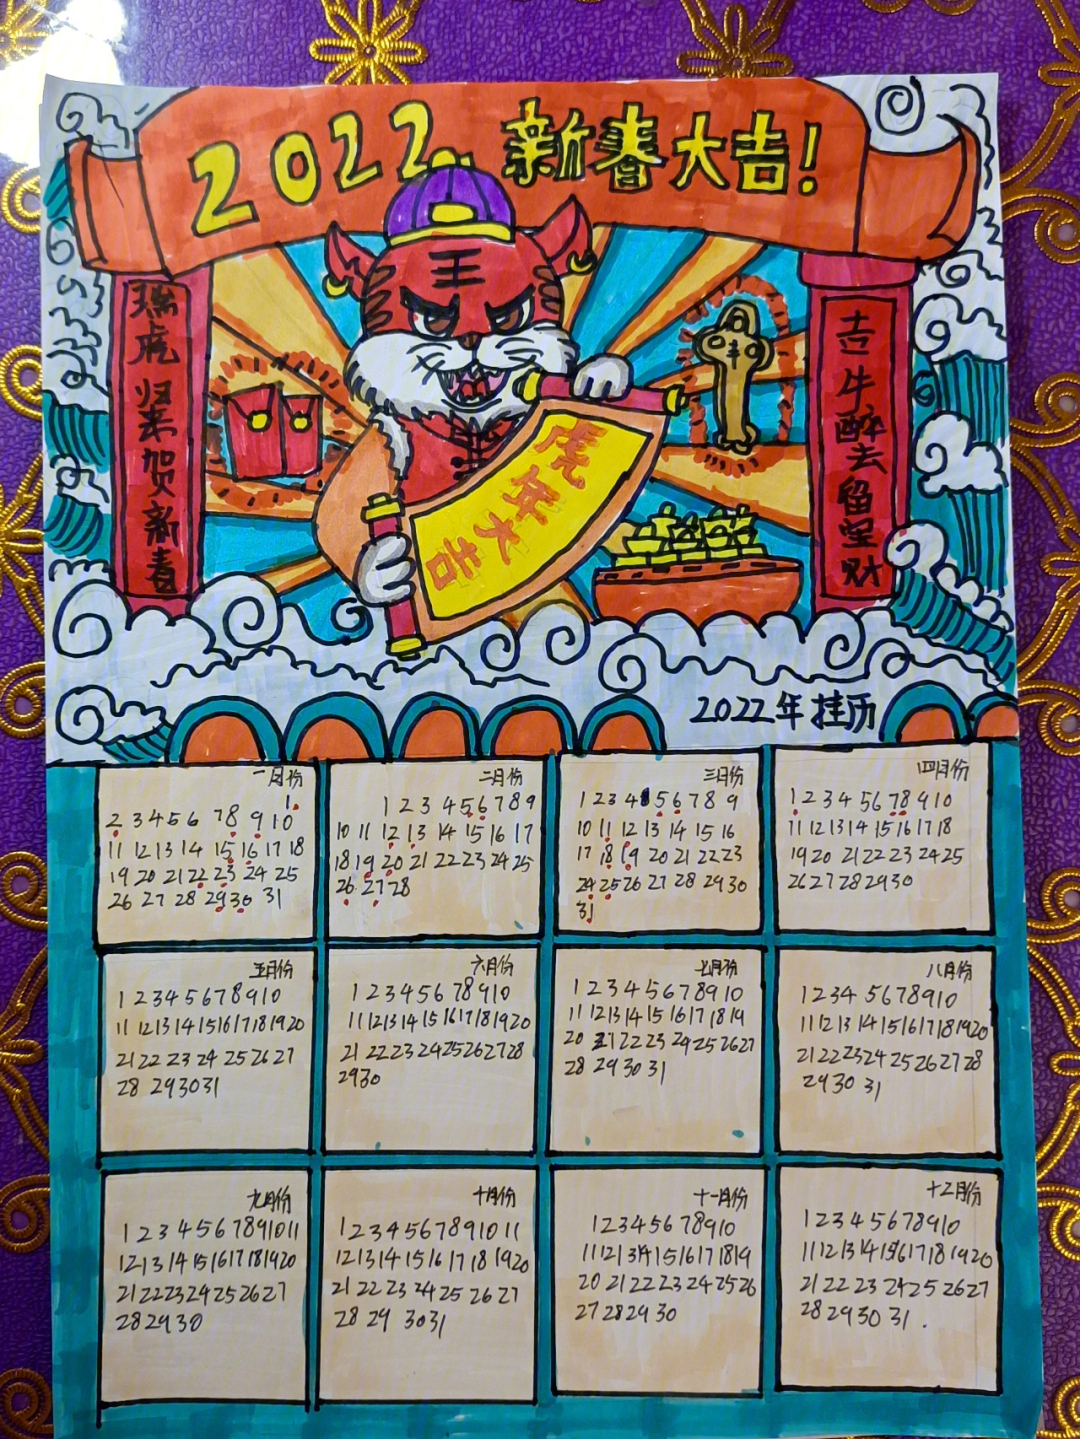 2022 新春大吉!
王
瑞虎归来贺新春
虎年大吉
丰
吉牛醉去留宝财
2022年挂历
一月份
1
2 3 4 5 6 7 8 9 10
11 12 13 14 15 16 17 18
19 20 21 22 23 24 25
26 27 28 29 30 31
二月份
1 2 3 4 5 6 7 8 9
10 11 12 13 14 15 16 17
18 19 20 21 22 23 24 25
26 27 28
三月份
1 2 3 4 5 6 7 8 9
10 11 12 13 14 15 16
17 18 19 20 21 22 23
24 25 26 27 28 29 30
31
四月份
1 2 3 4 5 6 7 8 9 10
11 12 13 14 15 16 17 18
19 20 21 22 23 24 25
26 27 28 29 30
五月份
1 2 3 4 5 6 7 8 9 10
11 12 13 14 15 16 17 18 19 20
21 22 23 24 25 26 27
28 29 30 31
六月份
1 2 3 4 5 6 7 8 9 10
11 12 13 14 15 16 17 18 19 20
21 22 23 24 25 26 27 28
29 30
七月份
1 2 3 4 5 6 7 8 9 10
11 12 13 14 15 16 17 18 19
20 21 22 23 24 25 26 27
28 29 30 31
八月份
1 2 3 4 5 6 7 8 9 10
11 12 13 14 15 16 17 18 19 20
21 22 23 24 25 26 27 28
29 30 31
九月份
1 2 3 4 5 6 7 8 9 10 11
12 13 14 15 16 17 18 19 20
21 22 23 24 25 26 27
28 29 30
十月份
1 2 3 4 5 6 7 8 9 10 11
12 13 14 15 16 17 18 19 20
21 22 23 24 25 26 27
28 29 30 31
十一月份
1 2 3 4 5 6 7 8 9 10
11 12 13 14 15 16 17 18 19
20 21 22 23 24 25 26
27 28 29 30
十二月份
1 2 3 4 5 6 7 8 9 10
11 12 13 14 15 16 17 18 19 20
21 22 23 24 25 26 27
28 29 30 31 .